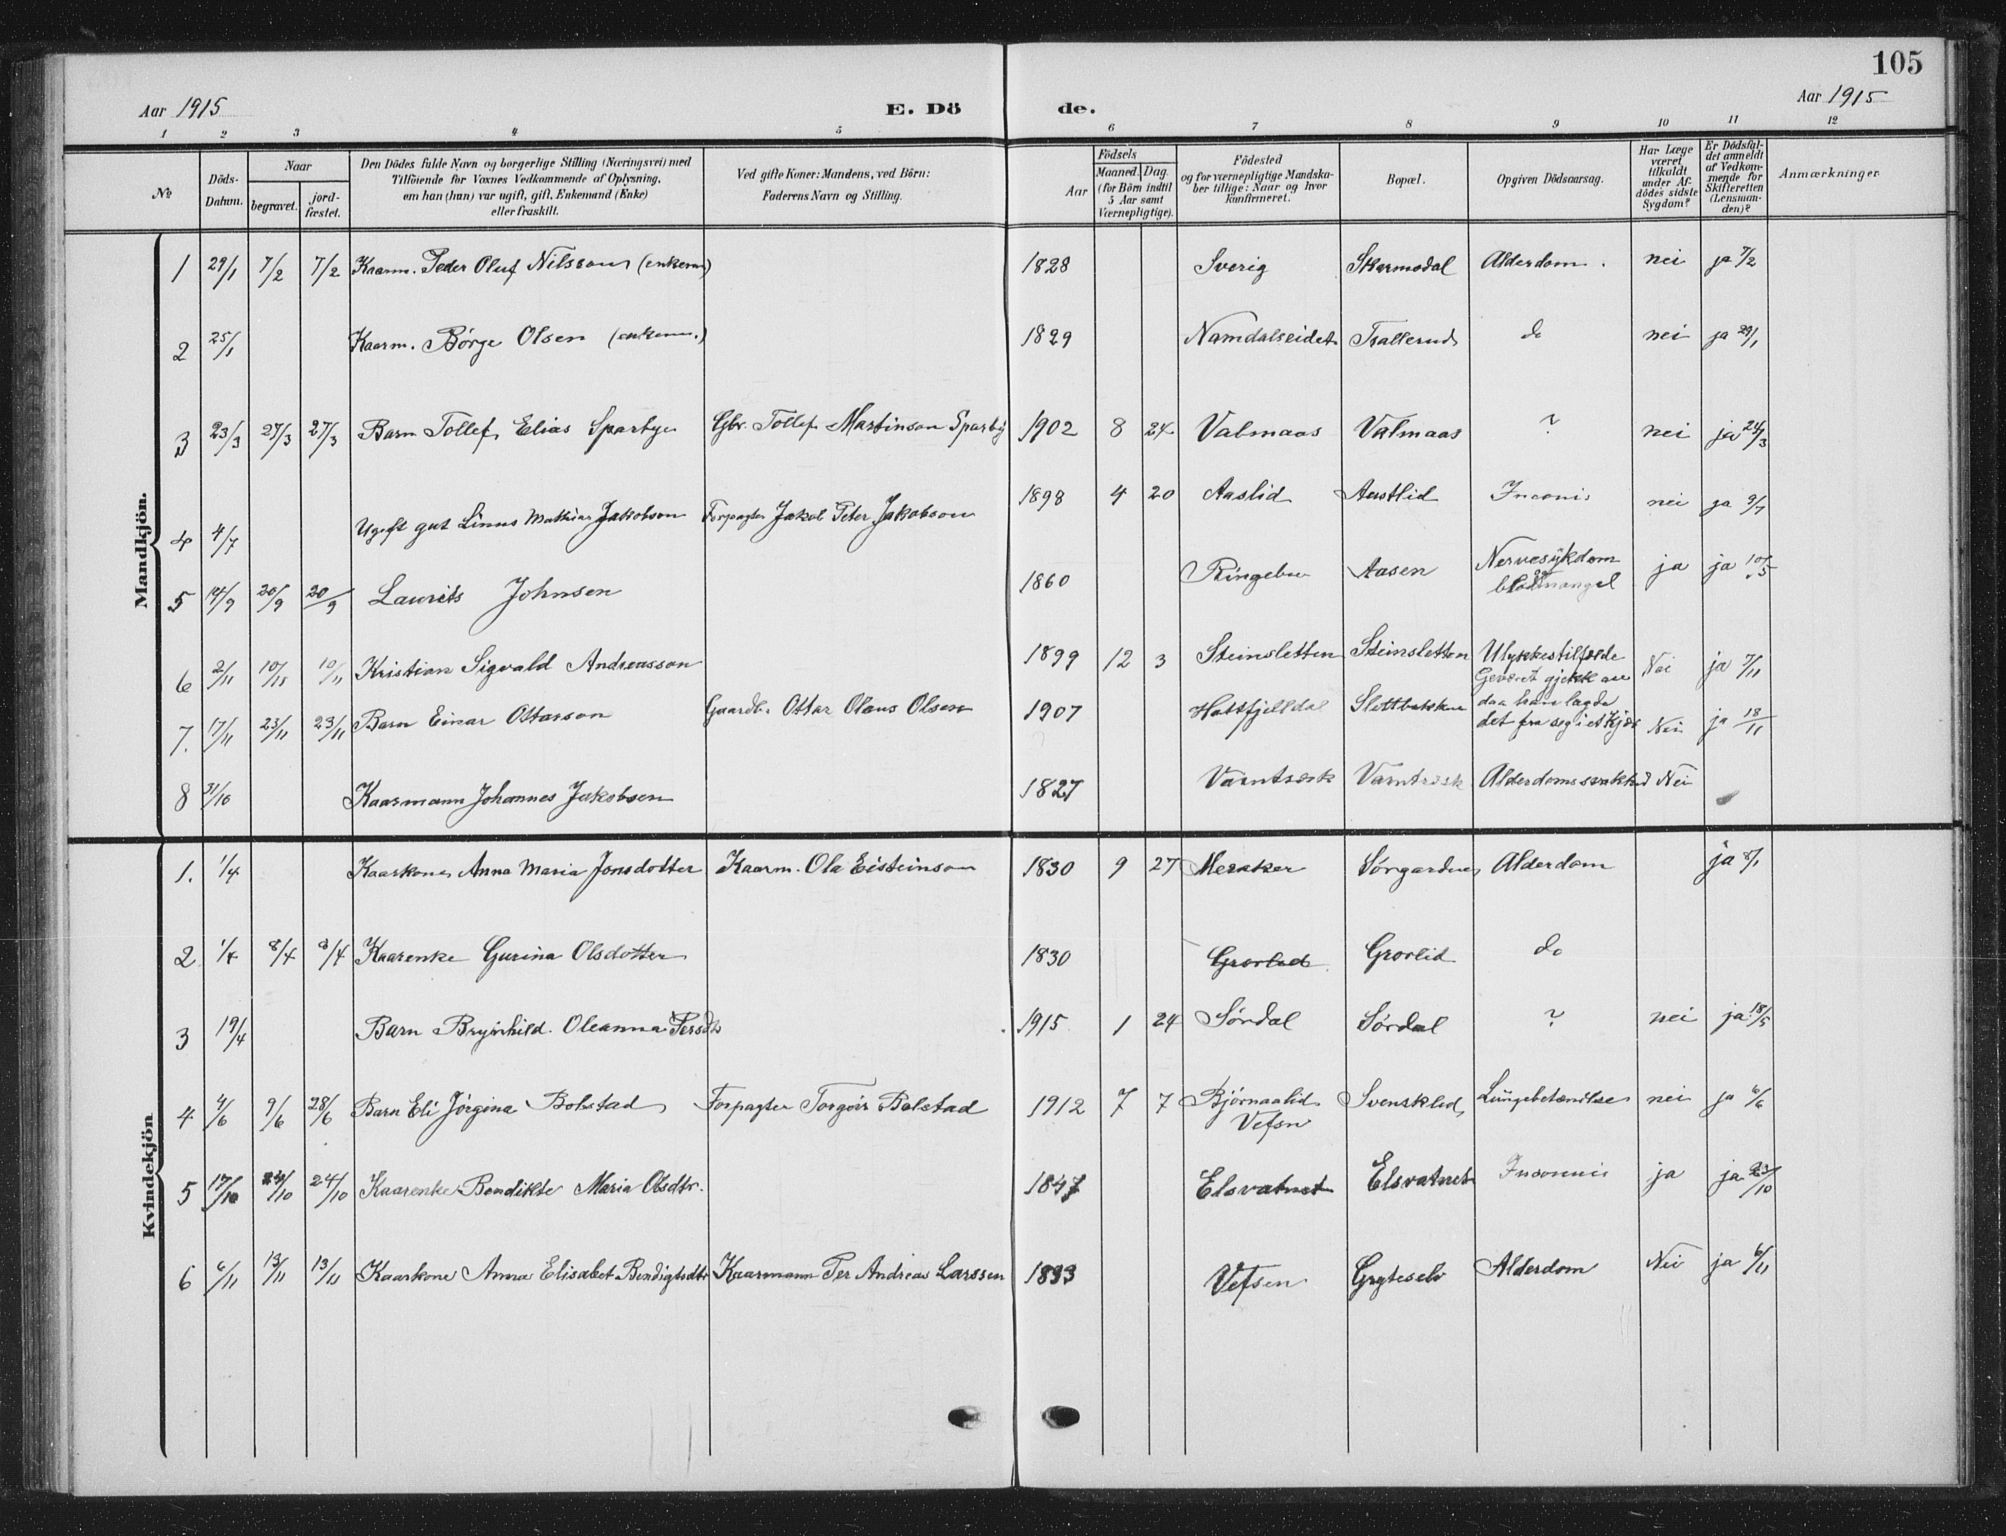 105
Aar 1915 E. Dö de. Aar 1915
1 2 3 4 5 6 7 8 9 10 11 12
№
Döds-Datum.
Naar
begravet.
jord-fæstet.
Den Dödes fulde Navn og borgerlige Stilling (Næringsvei) med
Tilföiende for Voxnes Vedkommende af Oplysning,
om han (hun) var ugift, gift, Enkemand (Enke)
eller fraskilt.
Ved gifte Koner: Mandens, ved Börn:
Faderens Navn og Stilling.
Födsels
Aar
Maaned. Dag
(for Börn indtil
5 Aar samt
Værnepligtige).
Födested
og for værnepligtige Mandska-
ber tillige: Naar og hvor
konfirmeret.
Bopæl.
Opgiven Dödsaarsag.
Har Læge
været
tilkaldt
under Af-
dödes sidste
Sygdom?
Er Dödsfal-
det anmeldt
af Vedkom-
mende for
Skifteretten
(Lensman-
den)?
Anmærkninger
Mandkjön.
1 29/1 7/2 7/2 Kaarm. Peder Oluf Nilsson (enkem) 1828 Sverig Skarmodal Alderdom. nei ja 7/2
2 25/1 Kaarm. Børge Olsen (enkem.) 1829 Namdalseidet Trallerud do nei ja 29/1
3 23/3 27/3 27/3 Barn Tollef Elias Sparbye Gbr. Tollef Martinson Sparby 1902 8 24 Valmaas Valmaas ? nei ja 24/3
4 4/7 Ugift gut Linus Mathias Jakobson Forpagter Jakob Peter Jakobson 1898 4 20 Aaslid Austlid nei ja 9/7
5 14/9 20/9 20/9 Laurits Johnsen 1860 Ringebu Aasen Nervesykdom og blodmangel ja ja
6 2/11 10/11 10/11 Kristian Sigvald Andreasson 1899 12 3 Steinsletten Steinsletten Ulykkestilfelde Nei ja 7/11
Geværet gjekk au
daa han lagde
det fra seg i et Kjær
7. 17/11 23/11 23/11 Barn Einar Ottarson Gaardb. Ottar Olaus Olsen 1907 Hattfjelldal Slettbakken Nei ja 18/11
8 31/10 Kaarmann Johannes Jakobsen 1827 Varntresk Varntresk Alderdomssvakked Nei
Kvindekjön
1. 1/4 Kaarkone Anna Maria Jonsdotter Kaarm. Ola Eisteinson 1830 9 27 Meraker Sørgarden Alderdom ja 8/1
2 1/4 8/4 8/4 Kaarenke Gurina Olsdotter 1830 Grovlid Grovlid do
3 19/4 Barn Brynhild Oleanna Persdt 1915 1 24 Sørdal Sørdal ? nei ja 18/5
4 4/6 9/6 28/6 Barn Eli Jørgina Bolstad Forpagter Torgeir Bolstad 1912 7 7 Bjørnaalid Vefsn Svensklid Lungebetendlse nei ja 6/6
5 17/10 24/10 24/10 Kaarenke Bendikte Maria Olsdtr. 1847 Elsvatnet Elsvatnet ja ja 23/10
6 6/11 13/11 13/11 Kaarkone Anna Elisabet Bendigtsdtr Kaarmann Per Andreas Larssen 1833 Vefsen Gryteselv Alderdom Nei ja 6/11